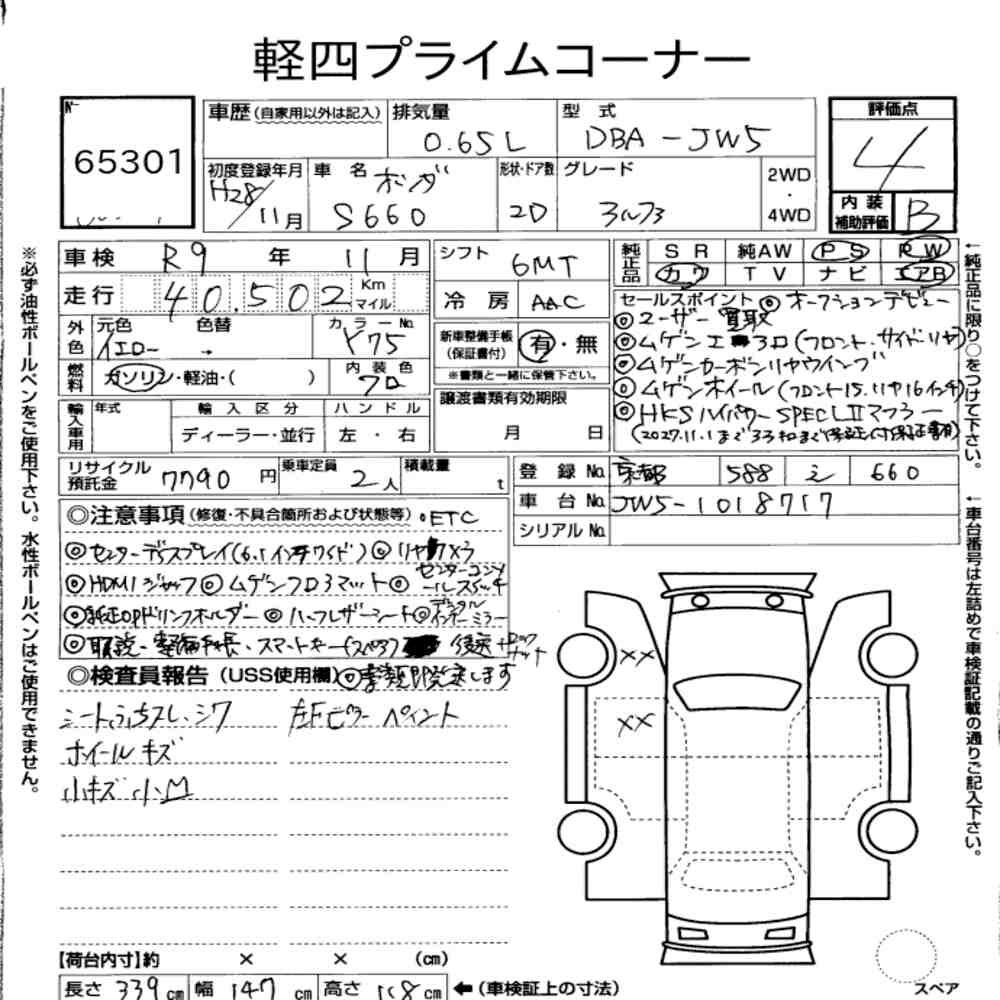 軽四プライムコーナー
№ 65301
車歴(自家用以外は記入) 排気量 0.65L 型式 DBA-JW5
評価点 4
内装補助評価 B
初度登録年月 H28/11月 車名 ホンダ S660 形状・ドア数 2D グレード アルファ 2WD・4WD
車検 R9年 11月
走行 40,502 Km マイル
外色 元色 イエロー 色替 → カラーNo. Y75
燃料 ガソリン・軽油・( ) 内装色 クロ
輸入車用 年式 輸入区分 ディーラー・並行 ハンドル 左・右
シフト 6MT
冷房 AAC
新車整備手帳(保証書付) 有・無
※書類と一緒に保管下さい。
譲渡書類有効期限 月 日
純正品 SR 純AW PS PW
カワ TV ナビ エアB
セールスポイント ◎オークションデビュー
◎ユーザー買取
◎ムゲンエアロ(フロント.サイド.リヤ)
◎ムゲンカーボンリヤウイング
◎ムゲンホイール(フロント15.リヤ16インチ)
◎HKSハイパワーSPECLⅡマフラー
リサイクル預託金 7790円 乗車定員 2人 積載量 t
登録No. 京都 588 シ 660
車台No. JW5-1018717
シリアルNo.
◎注意事項(修復・不具合箇所および状態等) ◦ETC
◎センターディスプレイ(6.1インチワイド)
◎HDMIジャック ◎ムゲンフロアマット ◎センターコンソールスイッチ
◎純正OPドリンクホルダー ◎ハーフレザーシート ◎デジタルインナーミラー
◎取説・整備手帳・スマートキー(スペア) 後送
◎検査員報告(USS使用欄)
シートふちスレ、シワ 左Fピラーペイント
ホイールキズ
小キズ小凹
【荷台内寸】約 × × (cm)
長さ 339cm 幅 147cm 高さ 118cm ←(車検証上の寸法)
××
××
スペア
※必ず油性ボールペンをご使用下さい。水性ボールペンはご使用できません。
←純正品に限り○をつけて下さい。
←車台番号は左詰めで車検証記載の通りご記入下さい。